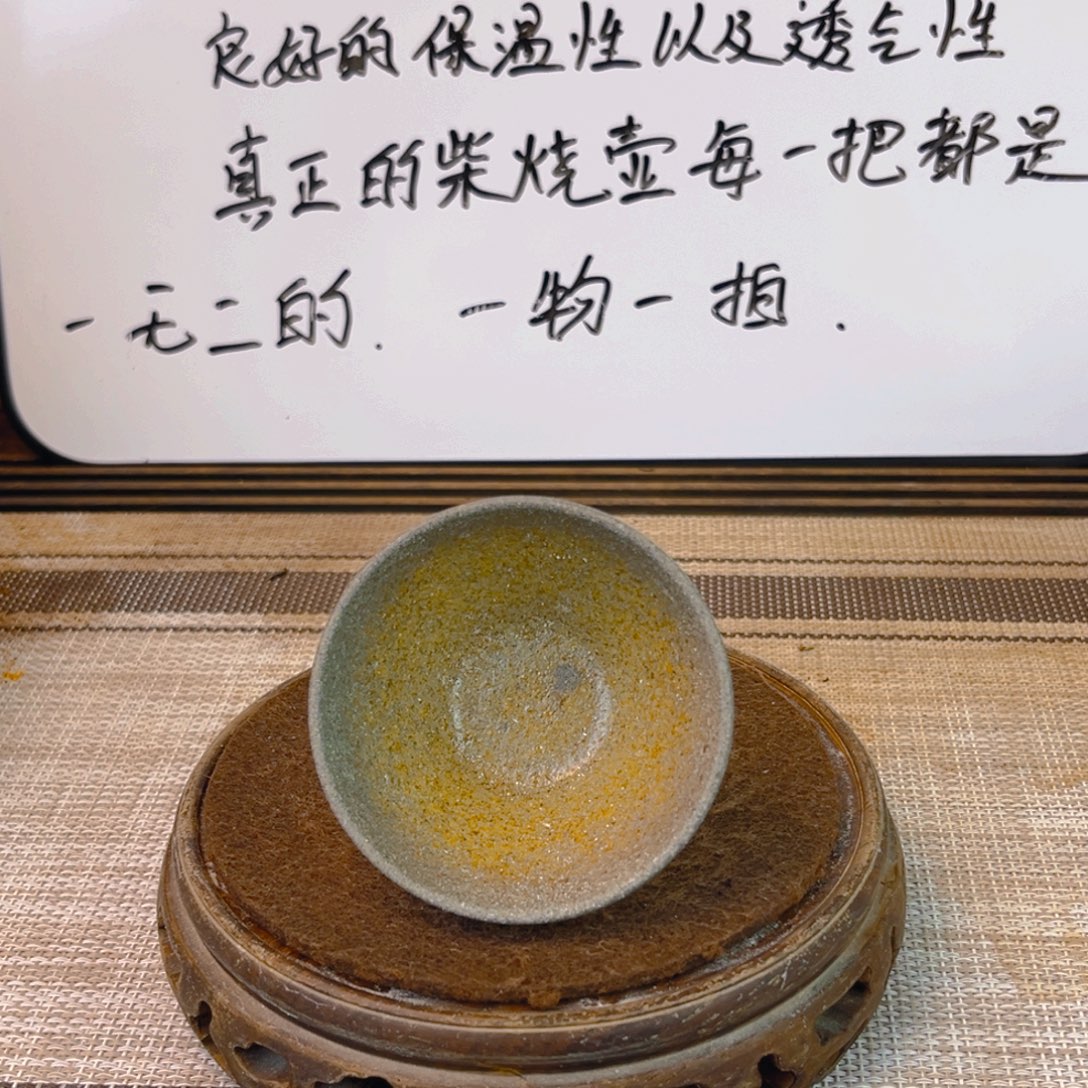 良好的保温性以及透气性
真正的柴烧壶每一把都是
一无二的. 一物一拍.